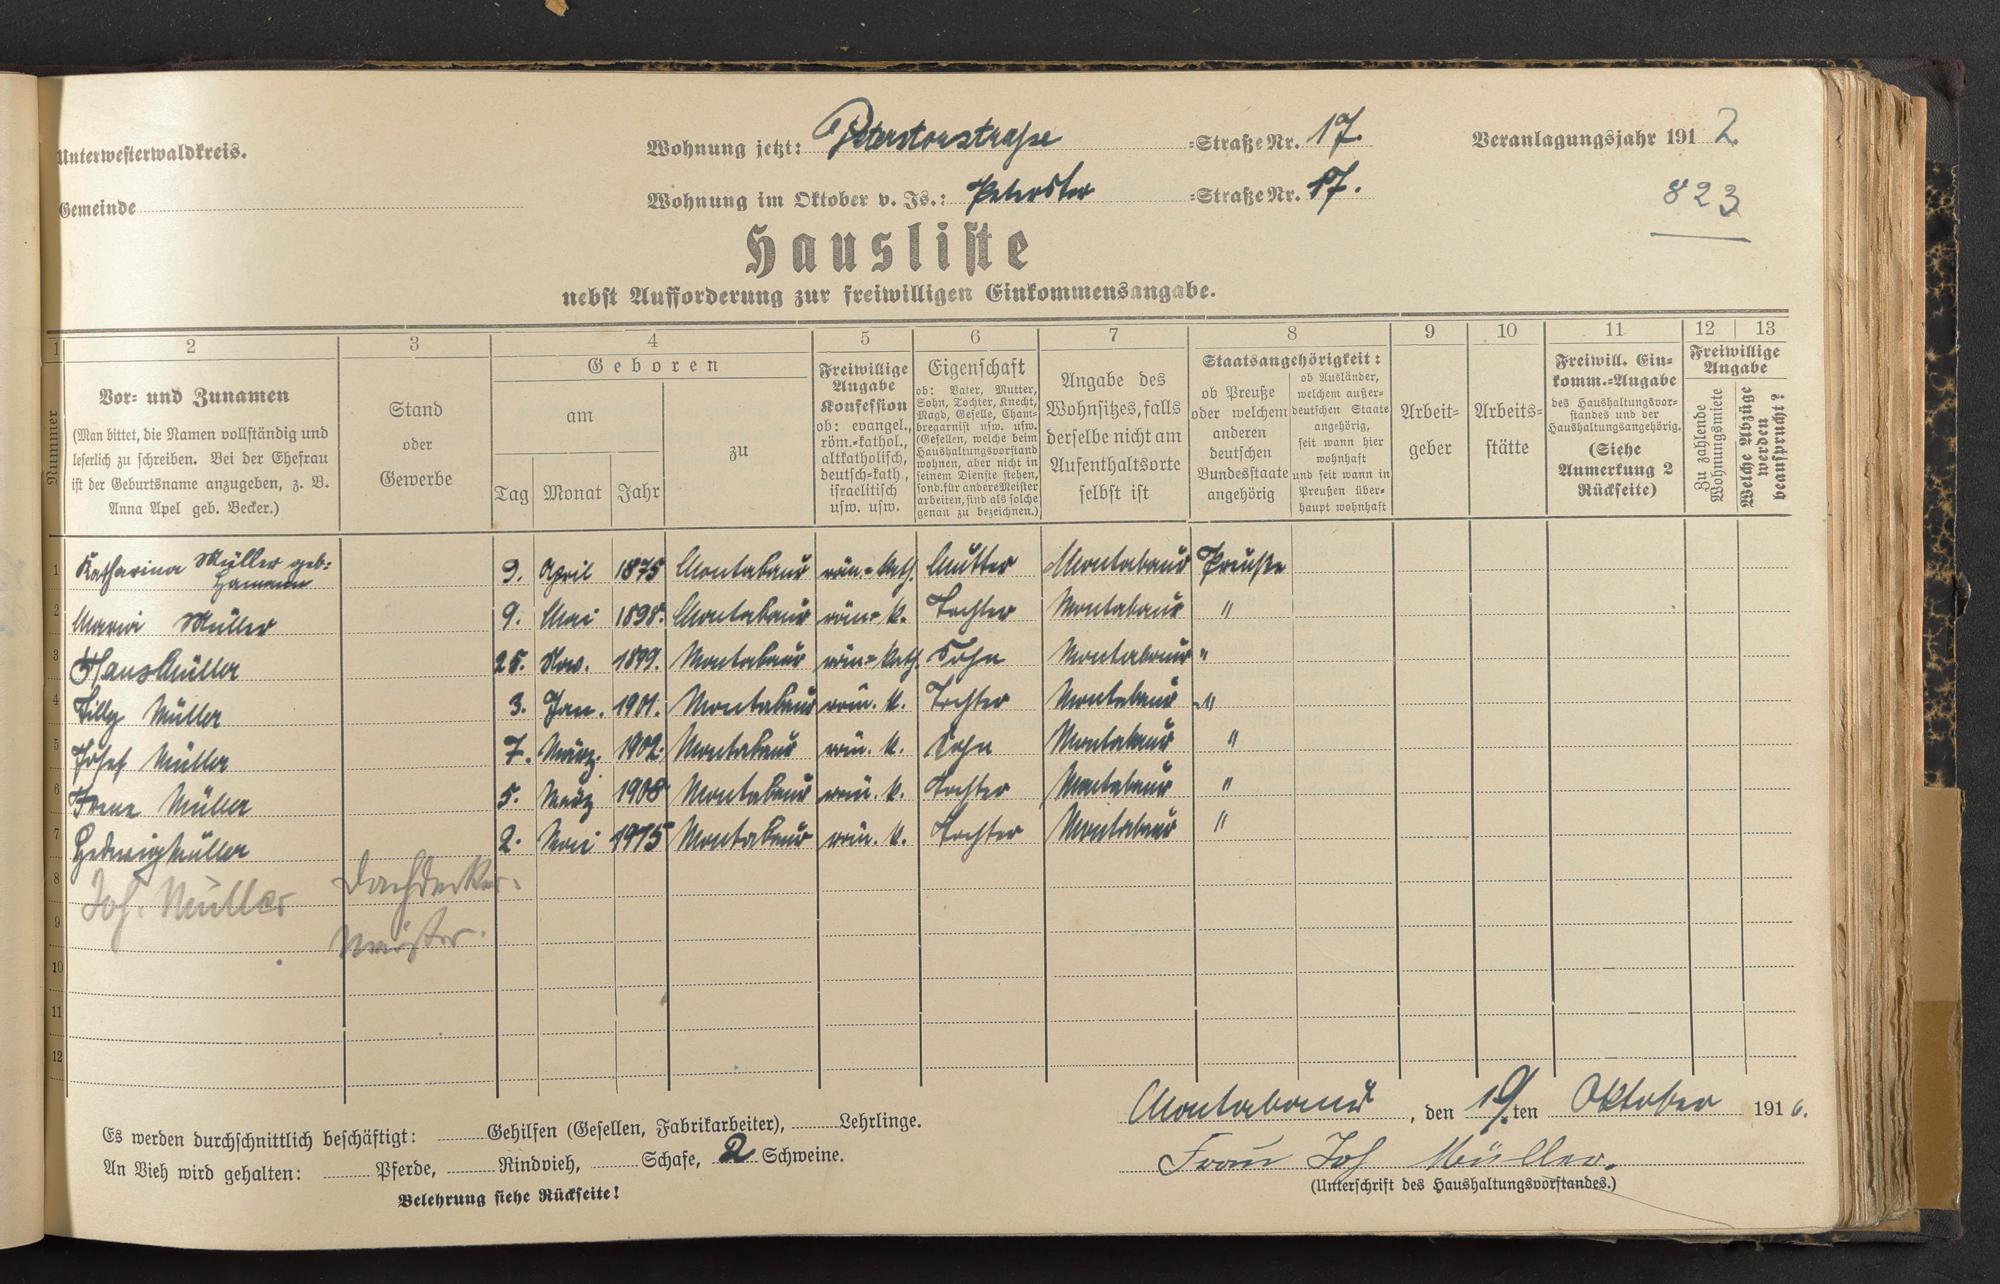 Unterwesterwaldkreis.
Wohnung jetzt: Peterstorstraße =Straße Nr. 17.
Veranlagungsjahr 191 2.
Gemeinde
Wohnung im Oktober v. Js.: Peterstor =Straße Nr. 17.
823
Hausliste
nebst Aufforderung zur freiwilligen Einkommensangabe.
1 2 3 4 5 6 7 8 9 10 11 12 13
Nummer
Vor= und Zunamen
(Man bittet, die Namen vollständig und
leserlich zu schreiben. Bei der Ehefrau
ist der Geburtsname anzugeben, z. B.
Anna Apel geb. Becker.)
Stand
oder
Gewerbe
Geboren
am
zu
Tag Monat Jahr
Freiwillige
Angabe
Konfession
ob: evangel.,
röm.=kathol.,
altkatholisch,
deutsch=kath.,
israelitisch
usw. usw.
Eigenschaft
ob: Vater, Mutter,
Sohn, Tochter, Knecht,
Magd, Geselle, Cham=
bregarnist usw. usw.
(Gesellen, welche beim
Haushaltungsvorstand
wohnen, aber nicht in
seinem Dienste stehen,
sond. für andere Meister
arbeiten, sind als solche
genau zu bezeichnen.)
Angabe des
Wohnsitzes, falls
derselbe nicht am
Aufenthaltsorte
selbst ist
Staatsangehörigkeit:
ob Preuße
oder welchem
anderen
deutschen
Bundesstaate
angehörig
ob Ausländer,
welchem außer=
deutschen Staate
angehörig,
seit wann hier
wohnhaft
und seit wann in
Preußen über=
haupt wohnhaft
Arbeit=
geber
Arbeits=
stätte
Freiwill. Ein=
komm.=Angabe
des Haushaltungsvor=
standes und der
Haushaltungsangehörig.
(Siehe
Anmerkung 2
Rückseite)
Freiwillige
Angabe
Zu zahlende
Wohnungsmiete
Welche Abzüge
werden
beansprucht?
1 Katharina Müller geb: Hamann 9. April 1875 Montabaur röm=kath. Mutter Montabaur Preuße
2 Maria Müller 9. Mai 1898. Montabaur röm=k. Tochter Montabaur "
3 Hans Müller 25. Nov. 1899. Montabaur röm=kath. Sohn Montabaur "
4 Tilly Müller 3. Jan. 1901. Montabaur röm. k. Tochter Montabaur "
5 Josef Müller 7. März. 1902. Montabaur röm. k. Sohn Montabaur "
6 Irene Müller 5. März 1908 Montabaur röm. k. Tochter Montabaur "
7 Hedwig Müller 2. Mai 1915 Montabaur röm. k. Tochter Montabaur "
8 Joh. Müller Dachdecker=
9 Meister.
10
11
12
Montabaur, den 19. ten Oktober 191 6.
Es werden durchschnittlich beschäftigt: Gehilfen (Gesellen, Fabrikarbeiter), Lehrlinge.
An Vieh wird gehalten: Pferde, Rindvieh, Schafe, 2 Schweine.
Frau Joh Müller.
(Unterschrift des Haushaltungsvorstandes.)
Belehrung siehe Rückseite!